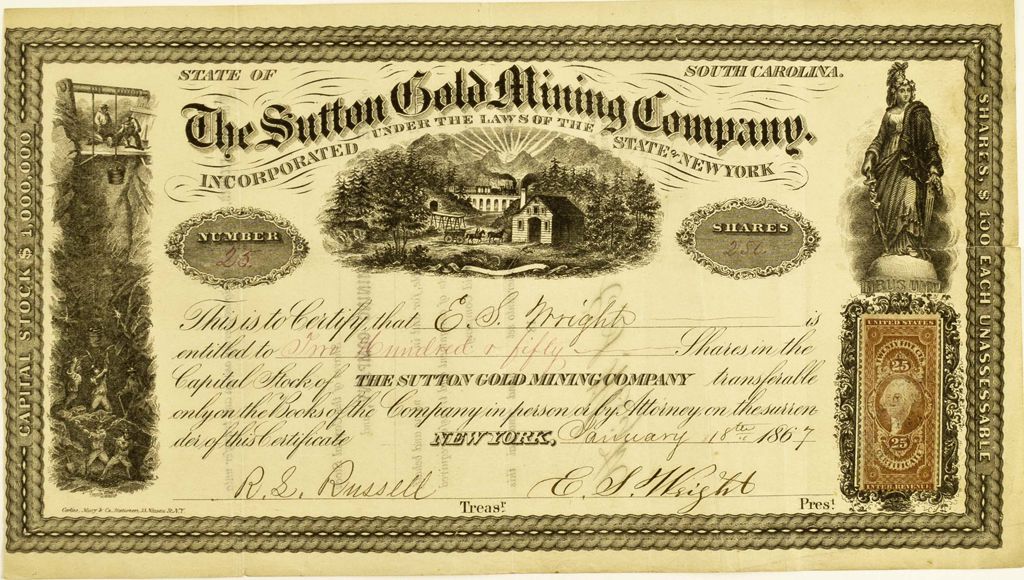 STATE OF SOUTH CAROLINA.
The Sutton Gold Mining Company.
INCORPORATED UNDER THE LAWS OF THE STATE OF NEW YORK
NUMBER
23
SHARES
250
CAPITAL STOCK $ 1,000,000
SHARES $ 100 EACH UNASSESSABLE
This is to Certify, that E. S. Wright is
entitled to Two Hundred & fifty Shares in the
Capital Stock of THE SUTTON GOLD MINING COMPANY transferable
only on the Books of the Company in person or by Attorney on the surren-
der of this Certificate NEW YORK, January 18th 1867
R. L. Russell E. S. Wright
Treast. Prest.
UNITED STATES
25
25
CERTIFICATE
INTER. REVENUE